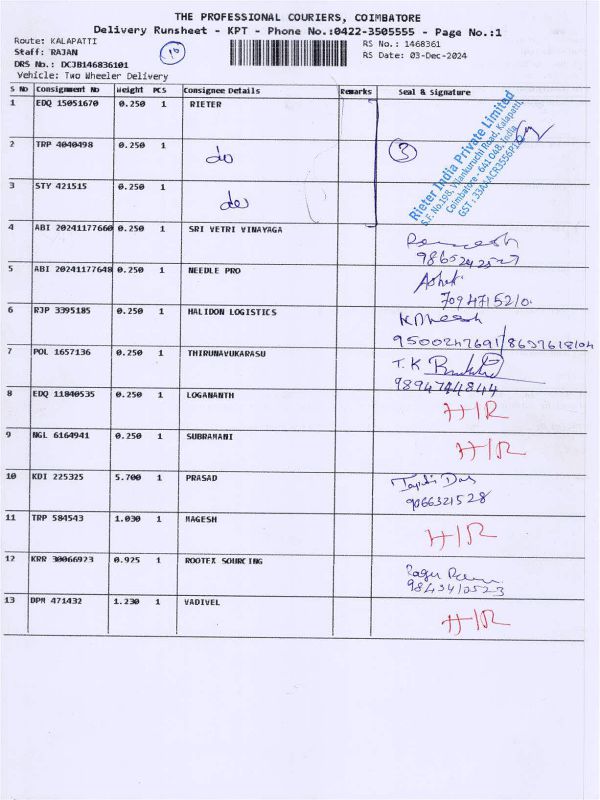 THE PROFESSIONAL COURIERS, COIMBATORE
Delivery Runsheet - KPT - Phone No.:0422-3505555 - Page No.:1
Route: KALAPATTI
RS No.: 1468361
Staff: RAJAN
10
RS Date: 03-Dec-2024
DRS No.: DCJB146836101
Vehicle: Two Wheeler Delivery
S No Consignment No Weight PCS Consignee Details Remarks Seal & Signature
1 EDQ 15051670 0.250 1 RIETER
Rieter India Private Limited
Coimbatore - 641 048, India
2 TRP 4040498 0.250 1 do
3
3 STY 421515 0.250 1 do
4 ABI 20241177660 0.250 1 SRI VETRI VINAYAGA
5 ABI 20241177648 0.250 1 NEEDLE PRO
Ashok
7094715210
6 RJP 3395185 0.250 1 HALIDON LOGISTICS
7 POL 1657136 0.250 1 THIRUNAVUKARASU
T.K
9894744844
8 EDQ 11840535 0.250 1 LOGANANTH
H/R
9 NGL 6164941 0.250 1 SUBRAMANI
H/R
10 KDI 225325 5.700 1 PRASAD
9066321528
11 TRP 584543 1.030 1 MAGESH
H/R
12 KRR 30066923 0.925 1 ROOTEX SOURCING
9843410523
13 DPM 471432 1.230 1 VADIVEL
H/R